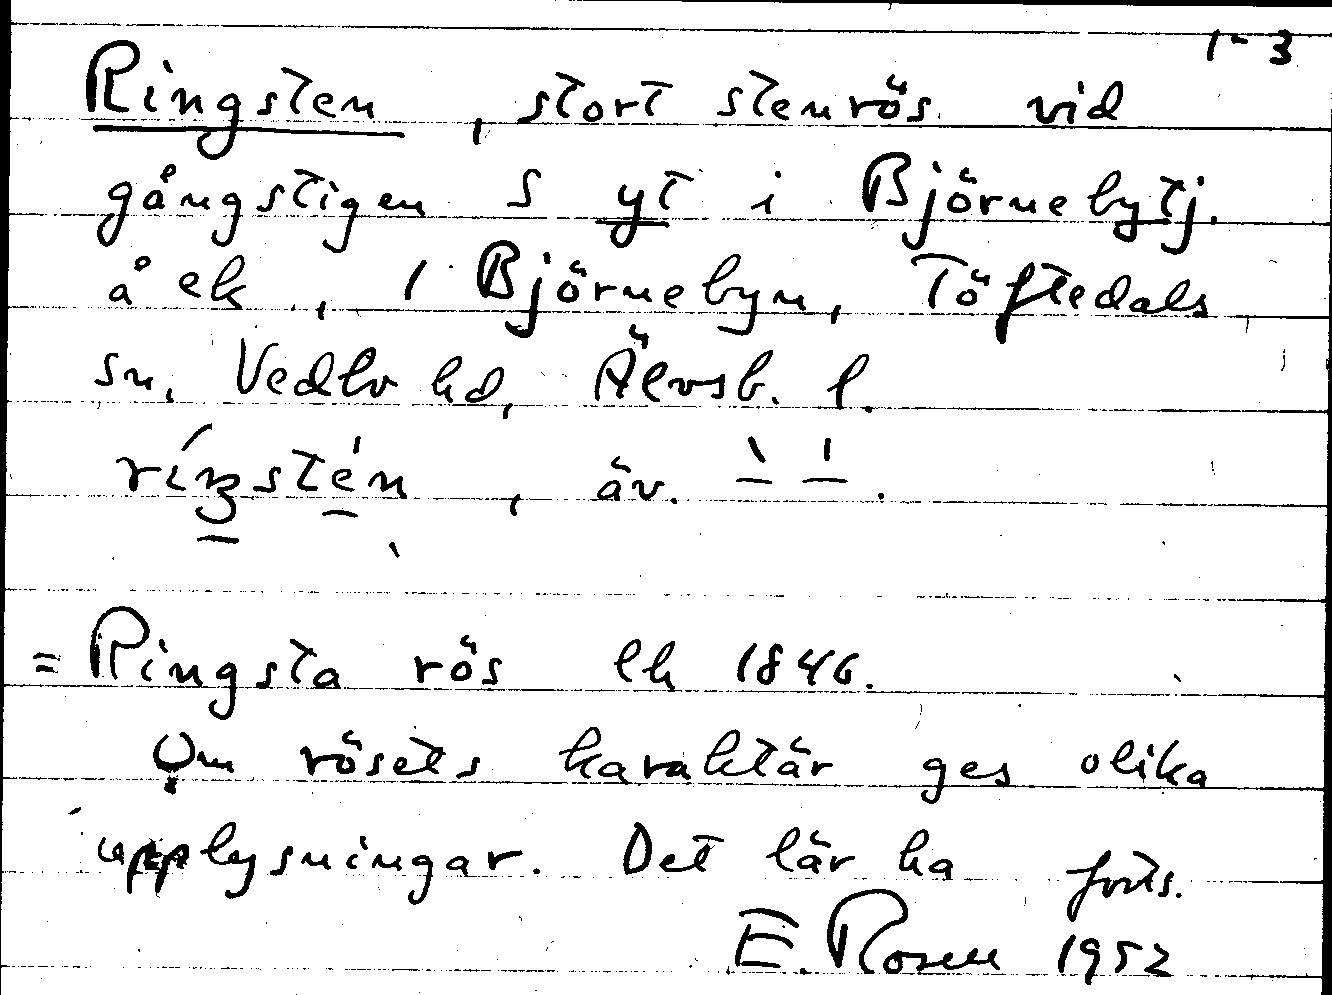 1-3
Ringsten, stort stenrös vid
gångstigen S yt i Björnebytj.
å ek, 1 Björnebyn, Töftedals
sn, Vedbo hd, Älvsb. l.
ríŋstén, äv. ̀– ́–.
= Ringsta rös lk 1846.
Om rösets karaktär ges olika
upplysningar. Det lär ha forts.
E. Rosell 1952